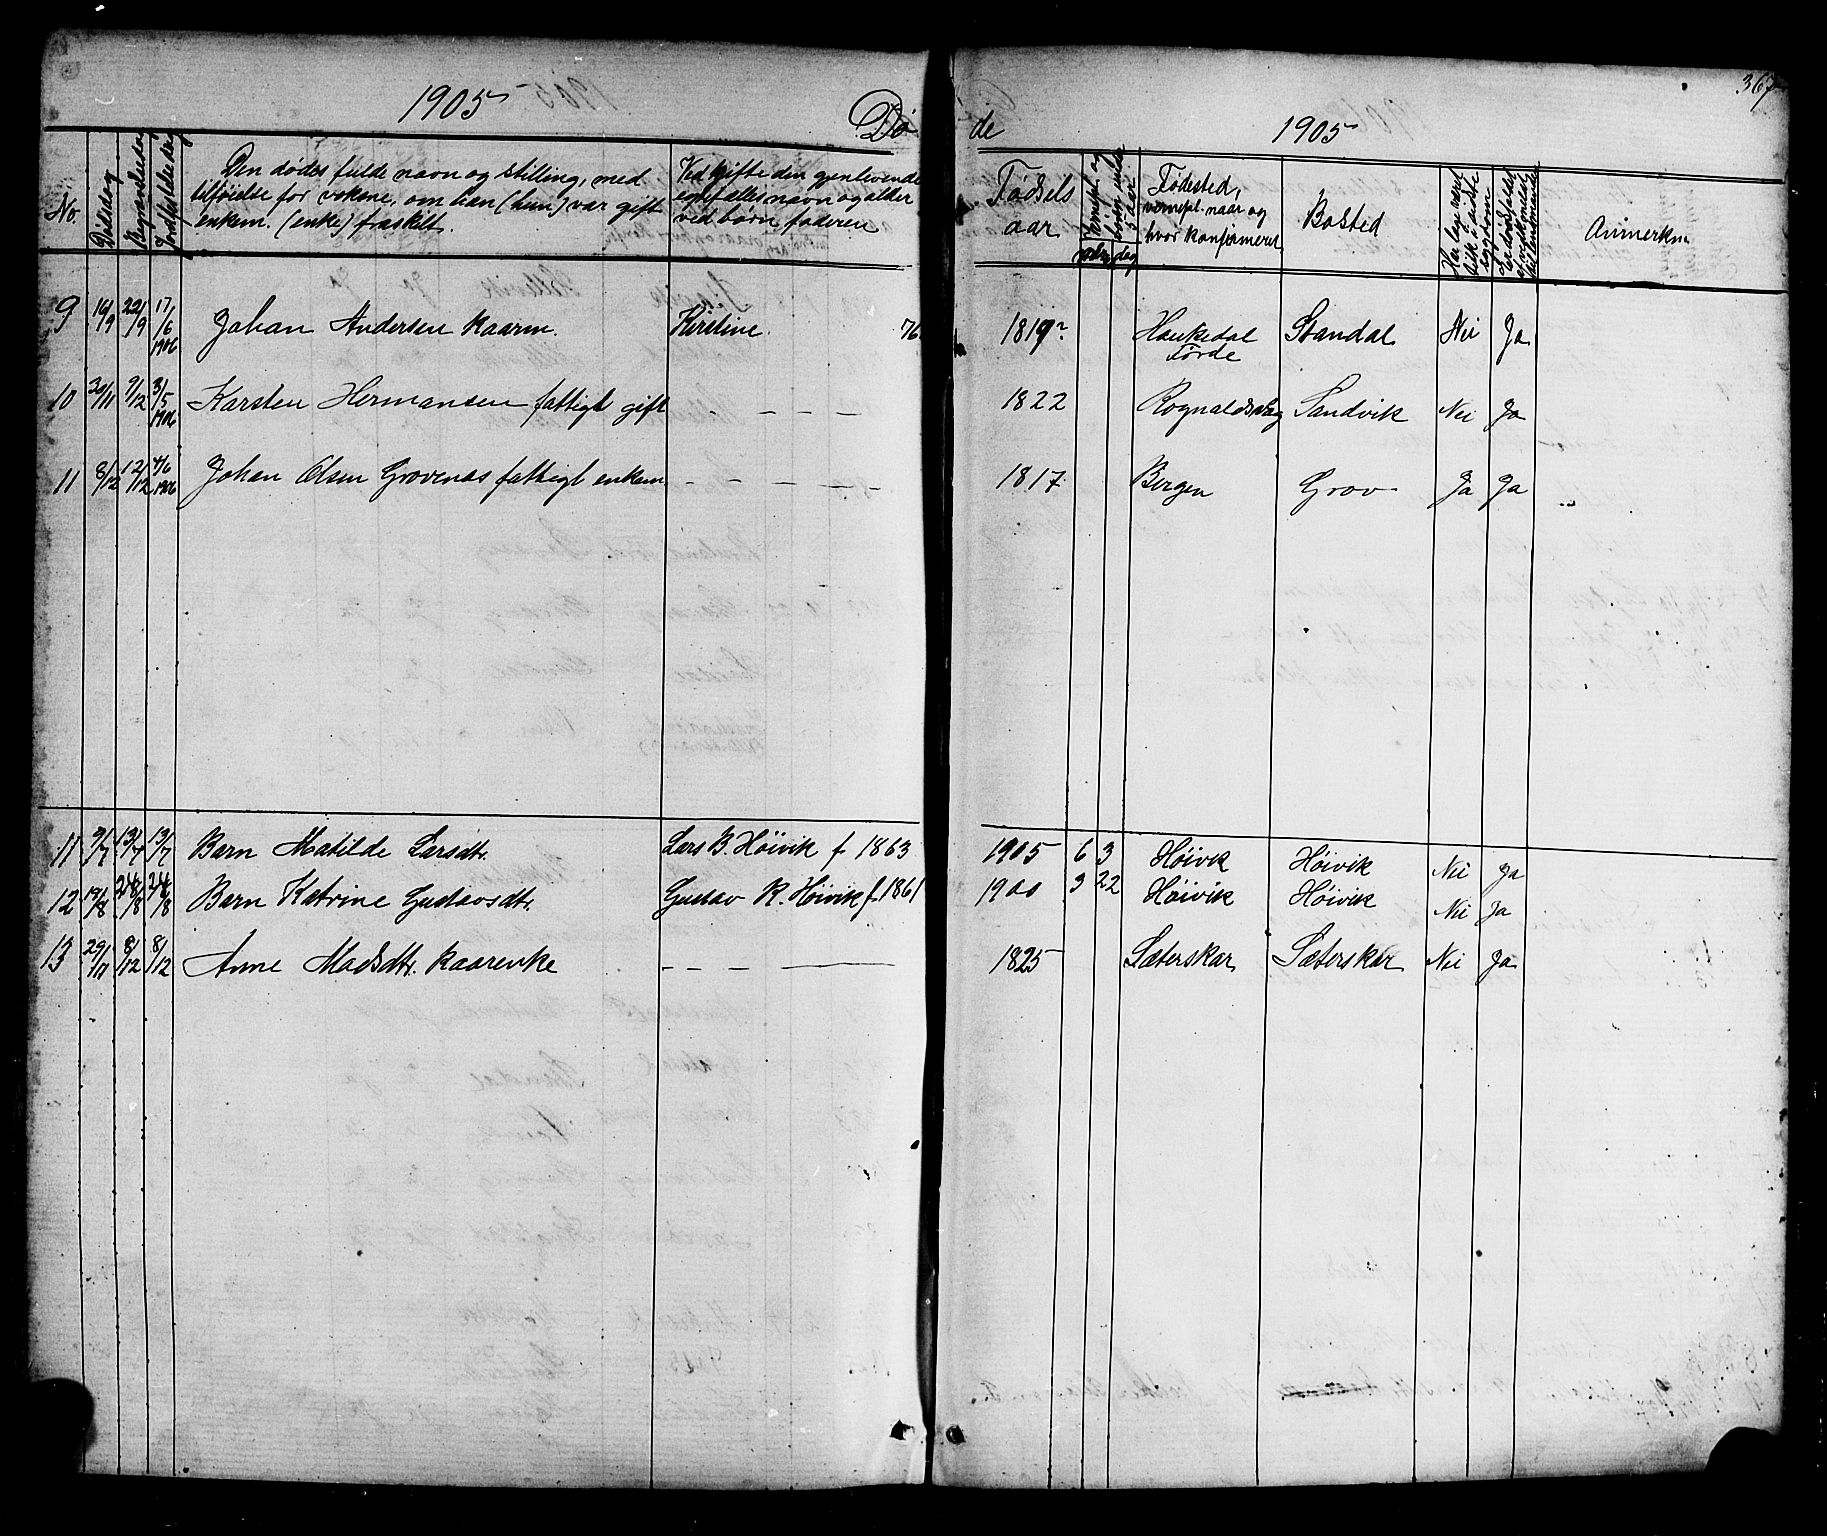 367
1905 Dø de 1905
No.
Dødsdag
Begravelsesdag
Jordfæstelsesdag
Den dødes fulde navn og stilling, med
tilføielse for voksne, om han (hun) var gift
enkem. (enke) fraskilt.
Ved gifte den gjenlevende
egtefælles navn og alder
ved børn faderen
Fødsels
aar
Fødested,
hvor konfirmeret
Bosted
Anmerkn
9 16/9 22/9 17/6 1906 Johan Andersen kaarm. Kirstine 76 1819? Haukedal Førde Standal Nei Ja
10 30/11 9/12 3/5 1906 Karsten Hermansen fattigl gift - - - - 1822 Rognaldsvåg Sandvik Nei Ja
11 8/12 12/12 4/6 1906 Johan Olsen Grovenæs fattigl enkem. - - - - - 1817 Bergen Grov Ja Ja
11 9/7 13/7 13/7 Barn Matilde Larsdtr. Lars B. Høivik f 1863 1905 6 3 Høivik Høivik Nei Ja
12 19/8 24/8 24/8 Barn Katrine Gustavsdtr. Gustav R. Høivik f. 1861 1900 3 22 Høivik Høivik Nei Ja
13 29/11 8/12 8/12 Anne Madsdtr. kaarenke - - - — 1825 Sæterskar Sæterskar Nei Ja